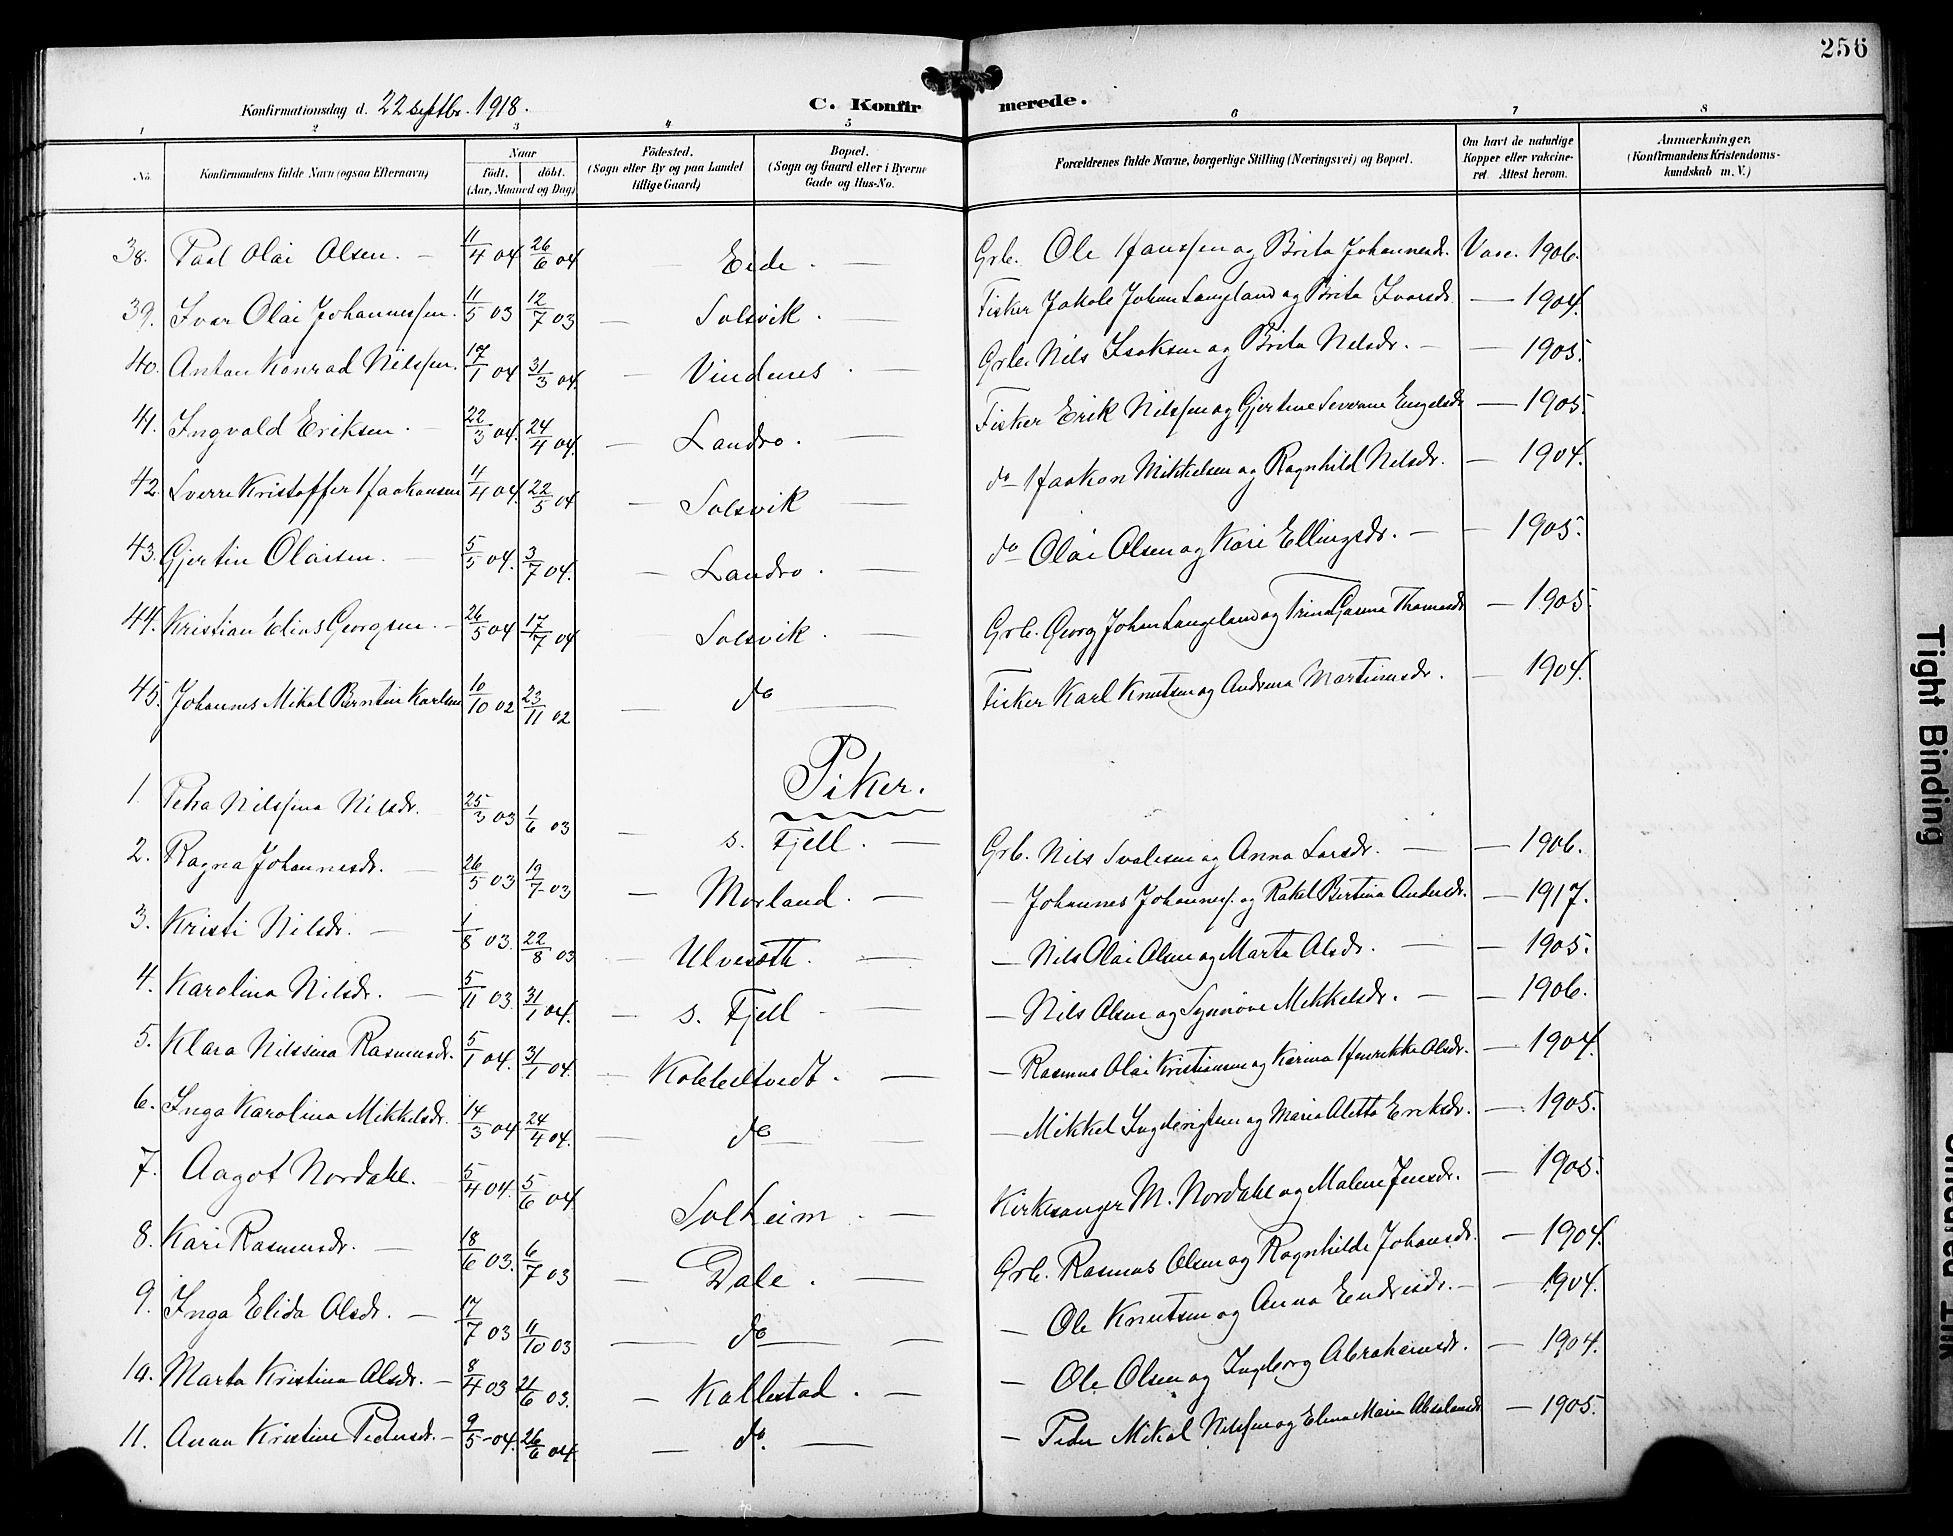 256
Konfirmationsdag d. 22 septbr. 1918.
C. Konfirmerede.
1 2 3 4 5 6 7 8
No.
Konfirmandens fulde Navn (ogsaa Efternavn)
Naar
født. døbt.
(Aar, Maaned og Dag)
Fødested.
(Sogn eller By og paa Landet
tillige Gaard)
Bopæl.
(Sogn og Gaard eller i Byerne
Gade og Hus-No.
Forældrenes fulde Navne, borgerlige Stilling (Næringsvei) og Bopæl.
Om havt de naturlige
Kopper eller vakcine-
ret. Attest herom.
Anmærkninger.
(Konfirmandens Kristendoms-
kundskab m. V.)
38. Paal Olai Olsen. — 11/4 04 26/6 04 — Eide. — Grb. Ole Hanssen og Brita Johannesdr. Vacc. 1906.
39. Ivar Olai Johannessen. 11/5 03 12/7 03 — Solsvik. — Fisker Jakob Johan Langeland og Brita Ivarsdr. — 1904.
40. Anton Konrad Nilssen. 17/1 04 31/3 04. — Vindenes. — Grb. Nils Isaksen og Brita Nilsdr. — — 1905.
41. Ingvald Eriksen. — 22/3 04. 24/4 04. — Landro. — Fisker Erik Nilssen og Gjertine Severine Engelsdr — 1905.
42. Sverre Kristoffer Haakonsen 11/4 04. 22/5 04 — Solsvik — do Haakon Mikkelsen og Ragnhild Nilsdr. — 1904.
43. Gjertin Olaisen. — 5/5 04. 3/7 04. — Landro. — do Olai Olsen og Kari Ellingsdr. — — 1905.
44. Kristian Elias Georgsen. — 26/5 04 17/7 04 — Solsvik. — Grb. Georg Johan Langeland og Trina Thomasdr — 1905.
45. Johannes Mikal Berntin Karlsen 10/10 02 23/11 02 — do — Fisker Karl Knutsen og Andrina Martinusdr. — 1904.
Piker.
1. Petra Nilssina Nilsdr. 25/3 03 1/6 03 — s. Fjell. — Grb. Nils and Anna Larsdr. — — 1906.
2. Ragna Johannesdr. — 26/5 03 19/7 03 — Morland. — — Johannes Johanness. og Rakel Bertina Andersdr. — 1917.
3. Kristi Nilsdr. — 1/8 03. 22/8 03 — Ulvesæth. — — Nils Olai Olsen og Marta Olsdr. — — 1905.
4. Karolina Nilsdr. — 5/11 03. 31/1 04. — s. Fjell — — Nils Olsen og Synnøve Mikkelsdr. — — 1906.
5. Klara Nilssina Rasmusdr. 5/1 04. 31/1 04. — Kobbeltvedt. — — Rasmus Olai Kristiansen og Karina Henrikke Olsdr. — 1904.
6. Inga Karolina Mikkelsdr. 14/3 04 24/4 04. — do — — — Mikkel Ingebrigtsen og Maria Aletta Eriksdr. — 1905.
7. Aagot Nordahl. — 5/4 04. 5/6 04 Solheim. — Kirkesanger M. Nordahl og Malene Jensdr. — 1905.
8. Kari Rasmusdr. — 18/6 03. 6/7 03 — Dale. — Grb. Rasmus Olsen og Ragnhilde Johansdr. — 1904.
9. Inga Elida Olsdr. — 17/7 03 11/10 03 — do — — — Ole Knutsen og Anna Endresdr. — — 1904.
10. Marta Kristina Olsdr. — 8/4 03 21/6 03. — Kallestad. — — Ole Olsen og Ingeborg Abrahamsdr. — 1904.
11. Anna Kristine Pedersdr. — 9/5 04. 26/6 04. — do. — — Peder Mikal Nilssen og Elina Maria — 1905.
Tight Binding